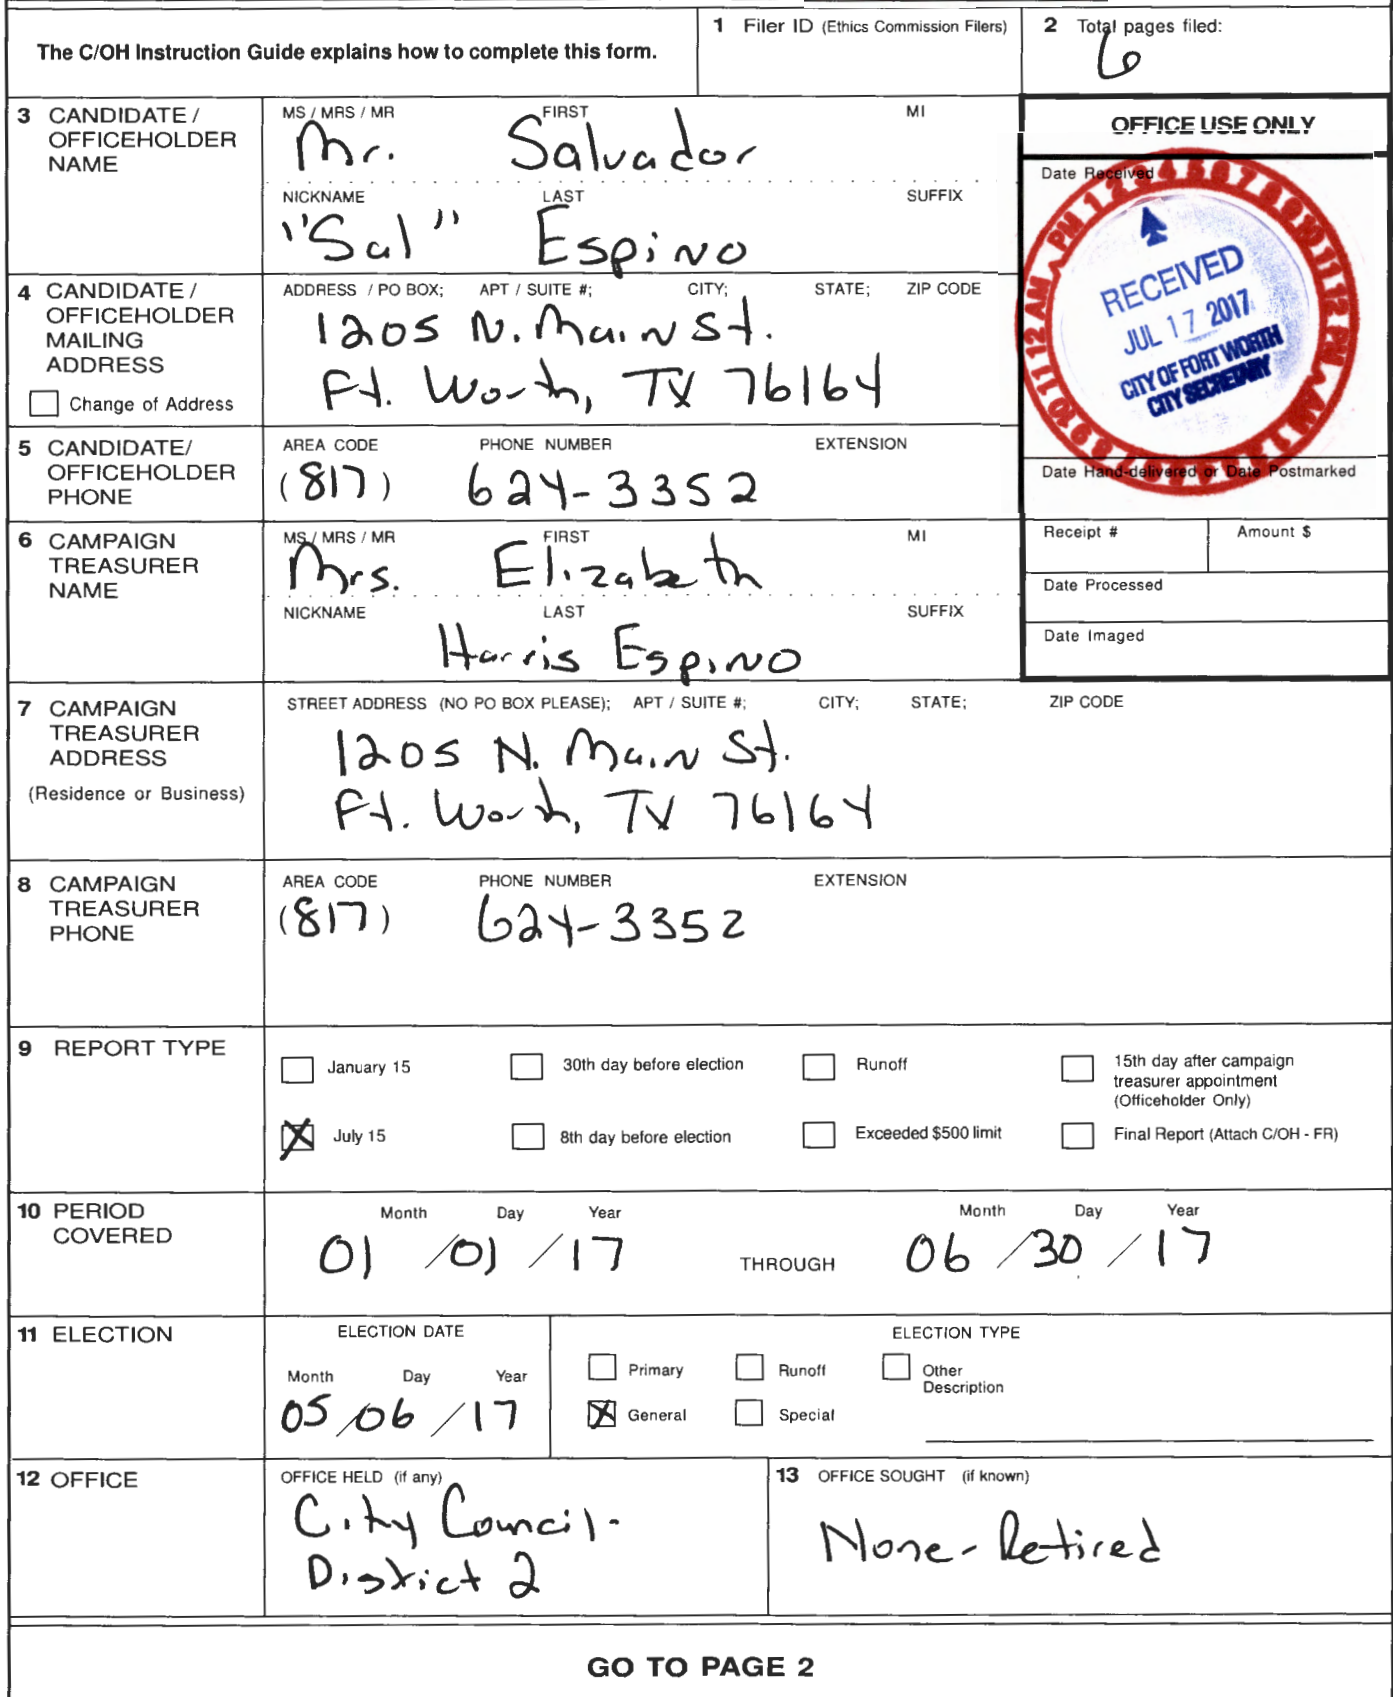 The C/OH Instruction Guide explains how to complete this form.
1 Filer ID (Ethics Commission Filers)
2 Total pages filed:
6
3 CANDIDATE / OFFICEHOLDER NAME
MS / MRS / MR FIRST MI
Mr. Salvador
NICKNAME LAST SUFFIX
"Sal" Espino
OFFICE USE ONLY
Date Received
12 AM PM 1 2 3 4 5 6 7 8 9 10 11 12 PM AM
RECEIVED
JUL 17 2017
CITY OF FORT WORTH
CITY SECRETARY
Date Hand-delivered or Date Postmarked
Receipt # Amount $
Date Processed
Date Imaged
4 CANDIDATE / OFFICEHOLDER MAILING ADDRESS
Change of Address
ADDRESS / PO BOX; APT / SUITE #; CITY; STATE; ZIP CODE
1205 N. Main St.
Ft. Worth, TX 76164
5 CANDIDATE/ OFFICEHOLDER PHONE
AREA CODE PHONE NUMBER EXTENSION
(817) 624-3352
6 CAMPAIGN TREASURER NAME
MS / MRS / MR FIRST MI
Mrs. Elizabeth
NICKNAME LAST SUFFIX
Harris Espino
7 CAMPAIGN TREASURER ADDRESS
(Residence or Business)
STREET ADDRESS (NO PO BOX PLEASE); APT / SUITE #; CITY; STATE; ZIP CODE
1205 N. Main St.
Ft. Worth, TX 76164
8 CAMPAIGN TREASURER PHONE
AREA CODE PHONE NUMBER EXTENSION
(817) 624-3352
9 REPORT TYPE
January 15 30th day before election Runoff 15th day after campaign treasurer appointment (Officeholder Only)
July 15 8th day before election Exceeded $500 limit Final Report (Attach C/OH - FR)
10 PERIOD COVERED
Month Day Year Month Day Year
01 / 01 / 17 THROUGH 06 / 30 / 17
11 ELECTION
ELECTION DATE
Month Day Year
05 / 06 / 17
ELECTION TYPE
Primary Runoff Other Description
General Special
12 OFFICE
OFFICE HELD (if any)
City Council-
District 2
13 OFFICE SOUGHT (if known)
None-Retired
GO TO PAGE 2